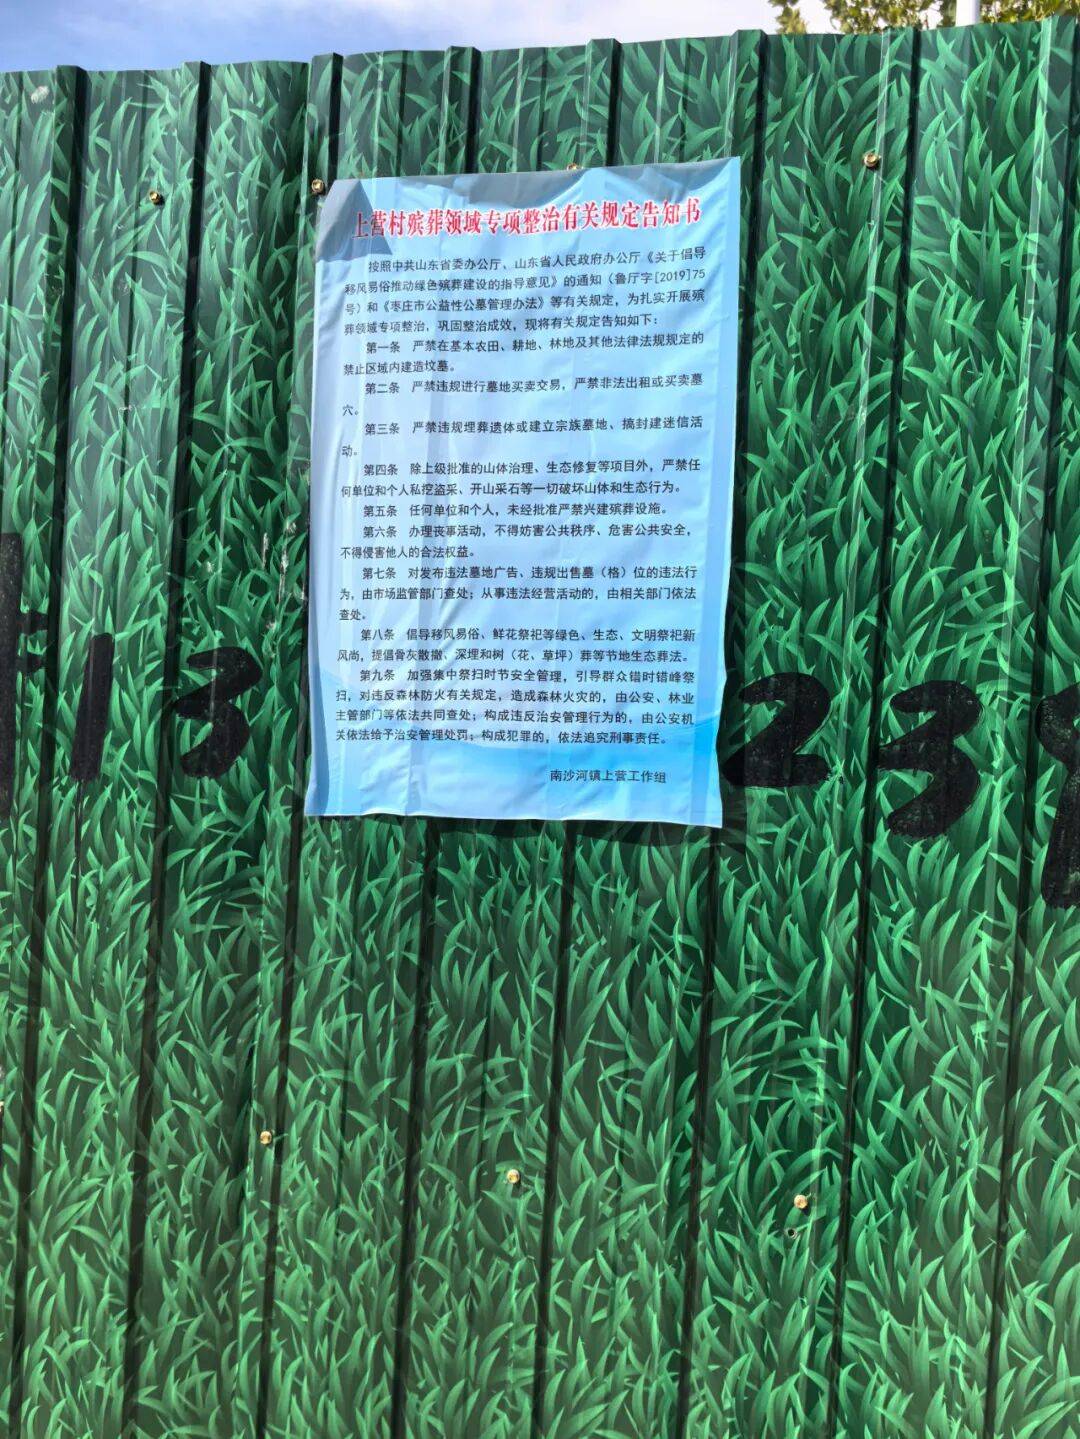 上营村殡葬领域专项整治有关规定告知书
按照中共山东省委办公厅、山东省人民政府办公厅《关于倡导
移风易俗推动绿色殡葬建设的指导意见》的通知（鲁厅字[2019]75
号）和《枣庄市公益性公墓管理办法》等有关规定，为扎实开展殡
葬领域专项整治，巩固整治成效，现将有关规定告知如下：
第一条 严禁在基本农田、耕地、林地及其他法律法规规定的
禁止区域内建造坟墓。
第二条 严禁违规进行墓地买卖交易，严禁非法出租或买卖墓
穴。
第三条 严禁违规埋葬遗体或建立宗族墓地、搞封建迷信活
动。
第四条 除上级批准的山体治理、生态修复等项目外，严禁任
何单位和个人私挖盗采、开山采石等一切破坏山体和生态行为。
第五条 任何单位和个人，未经批准严禁兴建殡葬设施。
第六条 办理丧事活动，不得妨害公共秩序、危害公共安全，
不得侵害他人的合法权益。
第七条 对发布违法墓地广告、违规出售墓（格）位的违法行
为，由市场监管部门查处；从事违法经营活动的，由相关部门依法
查处。
第八条 倡导移风易俗、鲜花祭祀等绿色、生态、文明祭祀新
风尚，提倡骨灰散撒、深埋和树（花、草坪）葬等节地生态葬法。
第九条 加强集中祭扫时节安全管理，引导群众错时错峰祭
扫，对违反森林防火有关规定，造成森林火灾的，由公安、林业
主管部门等依法共同查处；构成违反治安管理行为的，由公安机
关依法给予治安管理处罚；构成犯罪的，依法追究刑事责任。
南沙河镇上营工作组
13 23